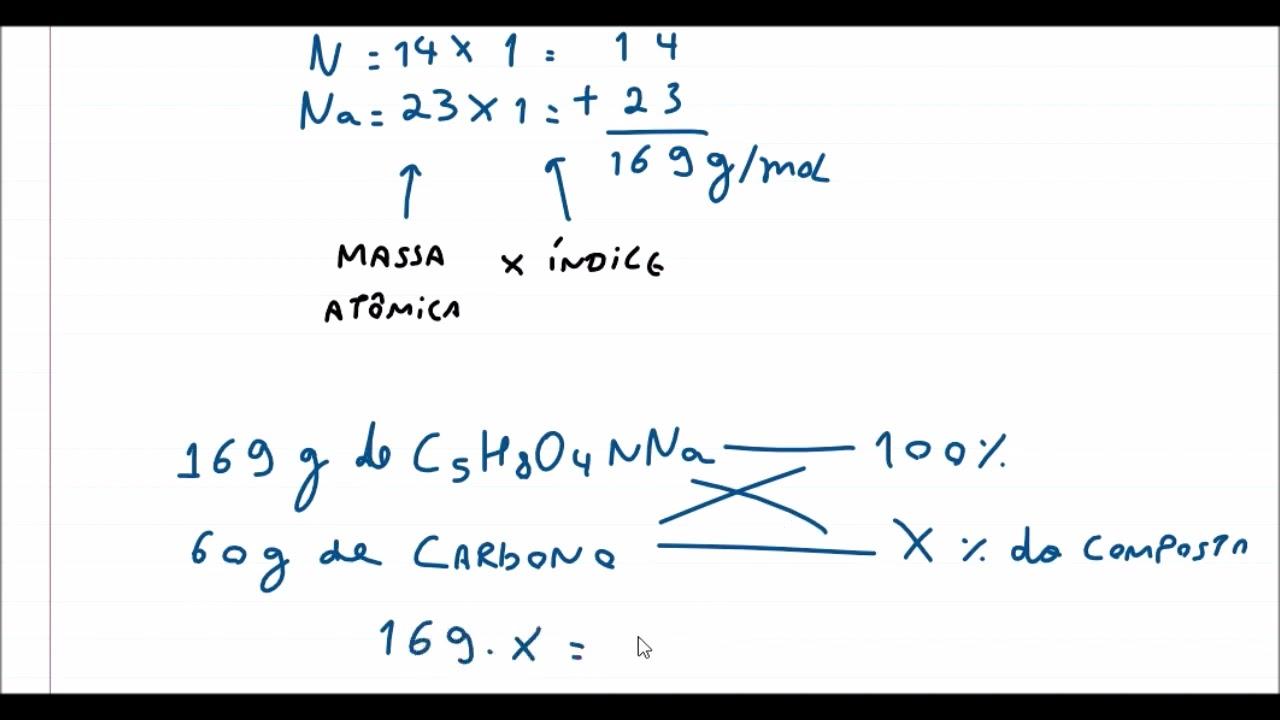 N = 14 x 1 = 14
Na = 23 x 1 = + 23
169 g/mol
MASSA x ÍNDICE
ATÔMICA
169 g de C₅H₈O₄NNa — 100%
60g de CARBONO — X % do COMPOSTO
169 . x =